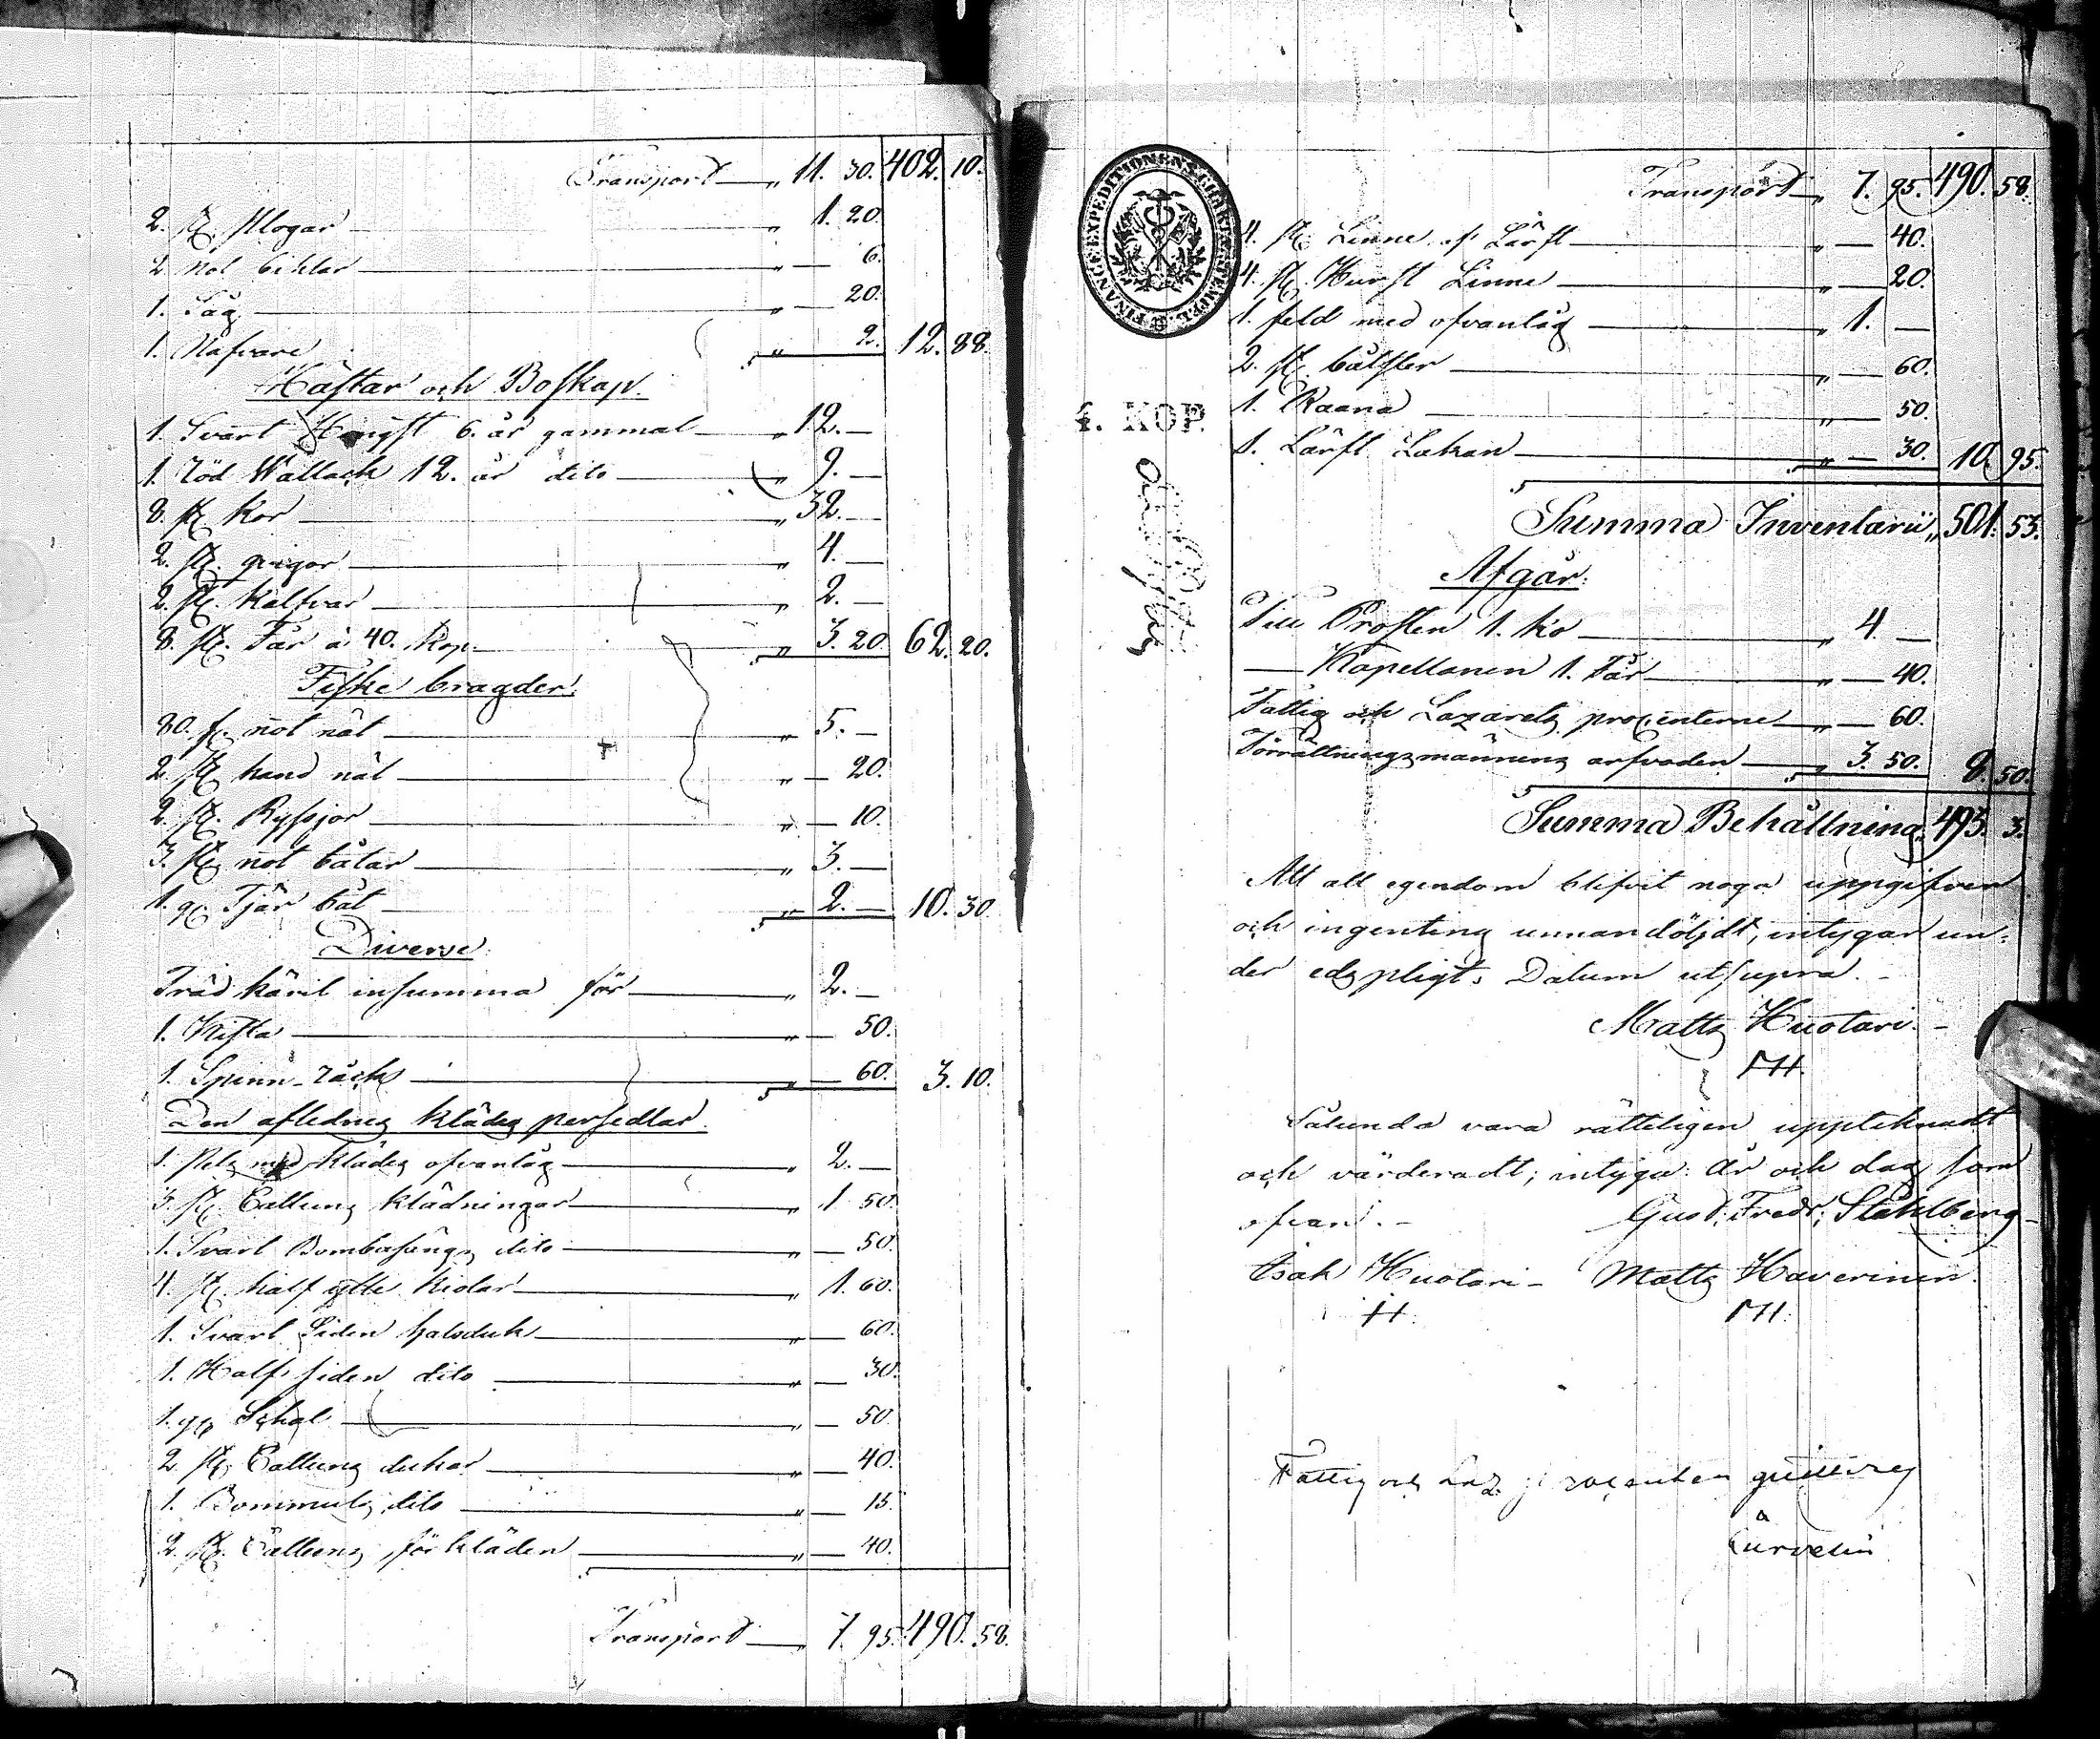 Transport — " 11. 30. 402. 10.
2. st. Plogar — " 1. 20.
2 not bihlar — " — 6.
1. Såg — " — 20.
1. Nafvare " 2. 12. 88.
Hästar och Boskap.
1. Svart Hingst 6. år gammal — " 12. —
1. röd Wallack 12. år dito — " 9. —
8. st. kor — " 32. —
2. st. qvigor — " 4. —
2. st. kalfvar — " 2. —
8. st. Får à 40. kop. " 3. 20. 62. 20.
Fiske bragder.
80. f. not nät — " 5. —
2. st. hand nät — " — 20.
2. st. Ryssjor — " — 10.
3. st. not båtar — " 3. —
1. gl. Tjär båt — " 2. — 10. 30.
Diverse
Träd käril insumma för — " 2. —
1. Kista — " — 50.
1. Spinn-råck — " — 60. 3. 10.
Den aflednes klädes persedlar.
1. Pels med klädes ofvanlag — " 2. —
3. st. Cattuns klädningar — " 1 50.
1. Svart Bombasångs dito — " — 50.
4. st. half ylle kiolar — " 1. 60.
1. Svart Siden halsduk — " — 60.
1. Half siden dito — " — 30.
1. gl. Schal — " — 50.
2. st. Cattuns dukar — " — 40.
1. Bommuls dito — " — 15.
2. st. Cattuns förkläden — " — 40.
Transport — " 7. 95. 490. 58.
FINANCE EXPEDITIONENS CHARTÆ STEMPEL
4. KOP.
Transport — " 7. 95. 490. 58.
4. st. Linne af Lärft — " — 40.
4. st. Hurst Linne — " — 20.
1. feld med ofvanlag — " 1. —
2. st. bålster — " — 60.
1. Raana — " — 50.
1. Lärft Lakan — " — 30. 10. 95.
Summa Inventarii " 501. 53.
Afgår.
Till Prosten 1. ko — " 4 —
— Kapellanen 1. Får — " — 40.
Fattig och Lazarets procenterne — " — 60.
Förrättningsmännens arfvoden — " 3. 50. 8. 50.
Summa Behållning " 493. 3.
Att all egendom blifvit noga uppgifven
och ingenting unnandöljdt, intygar un-
der eds pligt. Datum ut supra. -
Matts Huotari -
MH.
Sålunda vara rätteligen uppteknadt
och värderadt; intyga: År och dag som
ofvan. - Gust: Fredr: Ståhlberg -
Isak Huotari - Matts Haverinen.
IH. MH.
Fattig och Laz. procenten